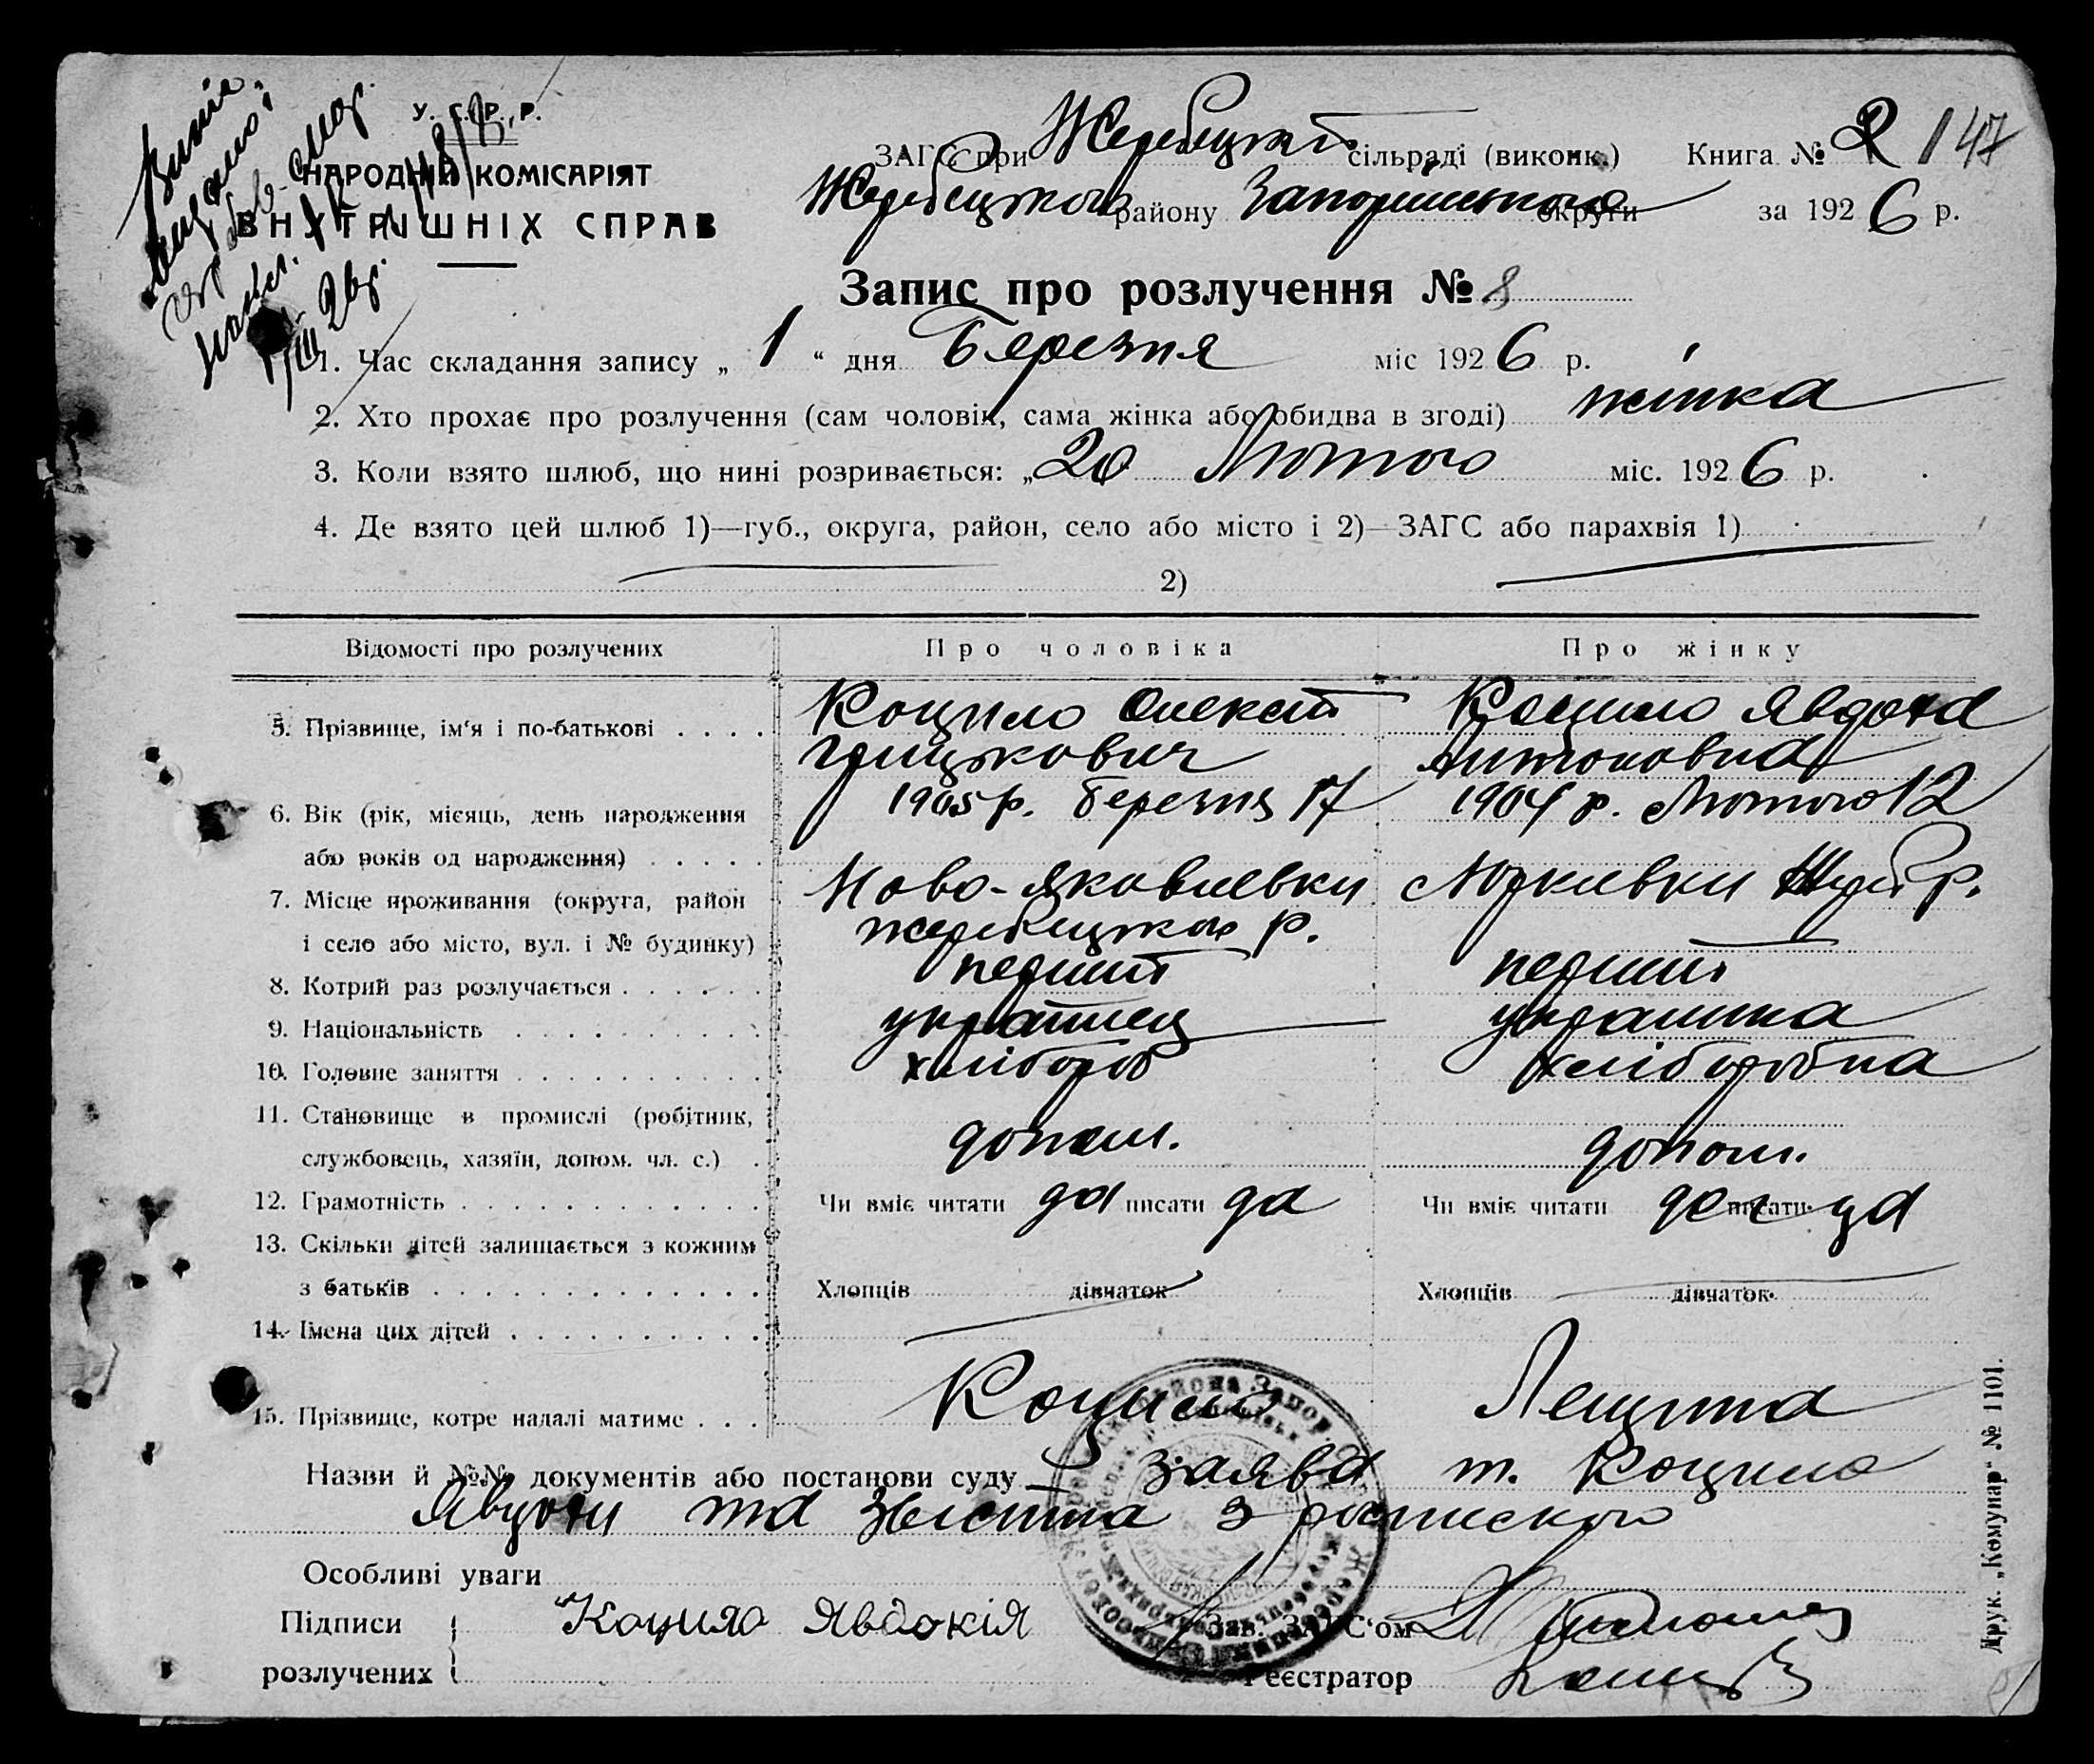 У. С. Р. Р.
НАРОДНІЙ КОМІСАРІЯТ
ВНУТРІШНІХ СПРАВ
ЗАГС при Жеребецькій сільраді (виконк.) Книга № 2 147
Жеребецького району Запорізького округи за 1926 р.
Запис про розлучення № 8
1. Час складання запису „ 1 “ дня Березня міс 1926 р.
2. Хто прохає про розлучення (сам чоловік, сама жінка або обидва в згоді) жінка
3. Коли взято шлюб, що нині розривається: „20 Лютого міс. 1926 р.
4. Де взято цей шлюб 1)—губ., округа, район, село або місто і 2)—ЗАГС або парахвія 1)
2)
Відомості про розлучених Про чоловіка Про жінку
5. Прізвище, ім‘я і по-батькові Коцило Олексій Коцило Явдоха
Грицькович Антоновна
6. Вік (рік, місяць, день народження 1905 р. березня 17 1904 р. Лютого 12
або років од народження)
7. Місце проживання (округа, район Ново-Яковлевки
і село або місто, вул. і № будинку) Жеребецького р.
8. Котрий раз розлучається перший перший
9. Національність українец українка
10. Головне заняття хлібороб хліборобка
11. Становище в промислі (робітник,
службовець, хазяїн, допом. чл. с.) допом. допом.
12. Грамотність Чи вміє читати да писати да Чи вміє читати да писати да
13. Скільки дітей залишається з кожним
з батьків Хлопців дівчаток Хлопців дівчаток
14. Імена цих дітей
15. Прізвище, котре надалі матиме Коцило Лещина
Назви й №№ документів або постанови суду заява т. Коцило
Явдохи та звістка з роспискою
Особливі уваги
Підписи Коцило Явдокія Зав. ЗАГС‘ом
розлучених Реєстратор
Друк. „Комунар“ № 1101.